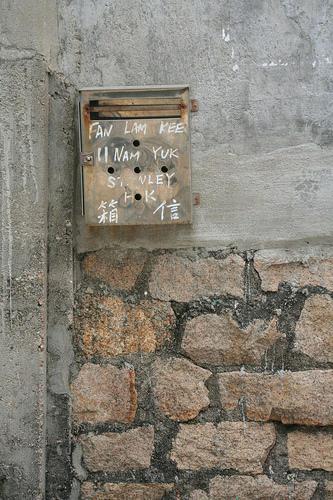 FAN LAM KEE
11 NAM YUK
STANLEY
H K
箱 信